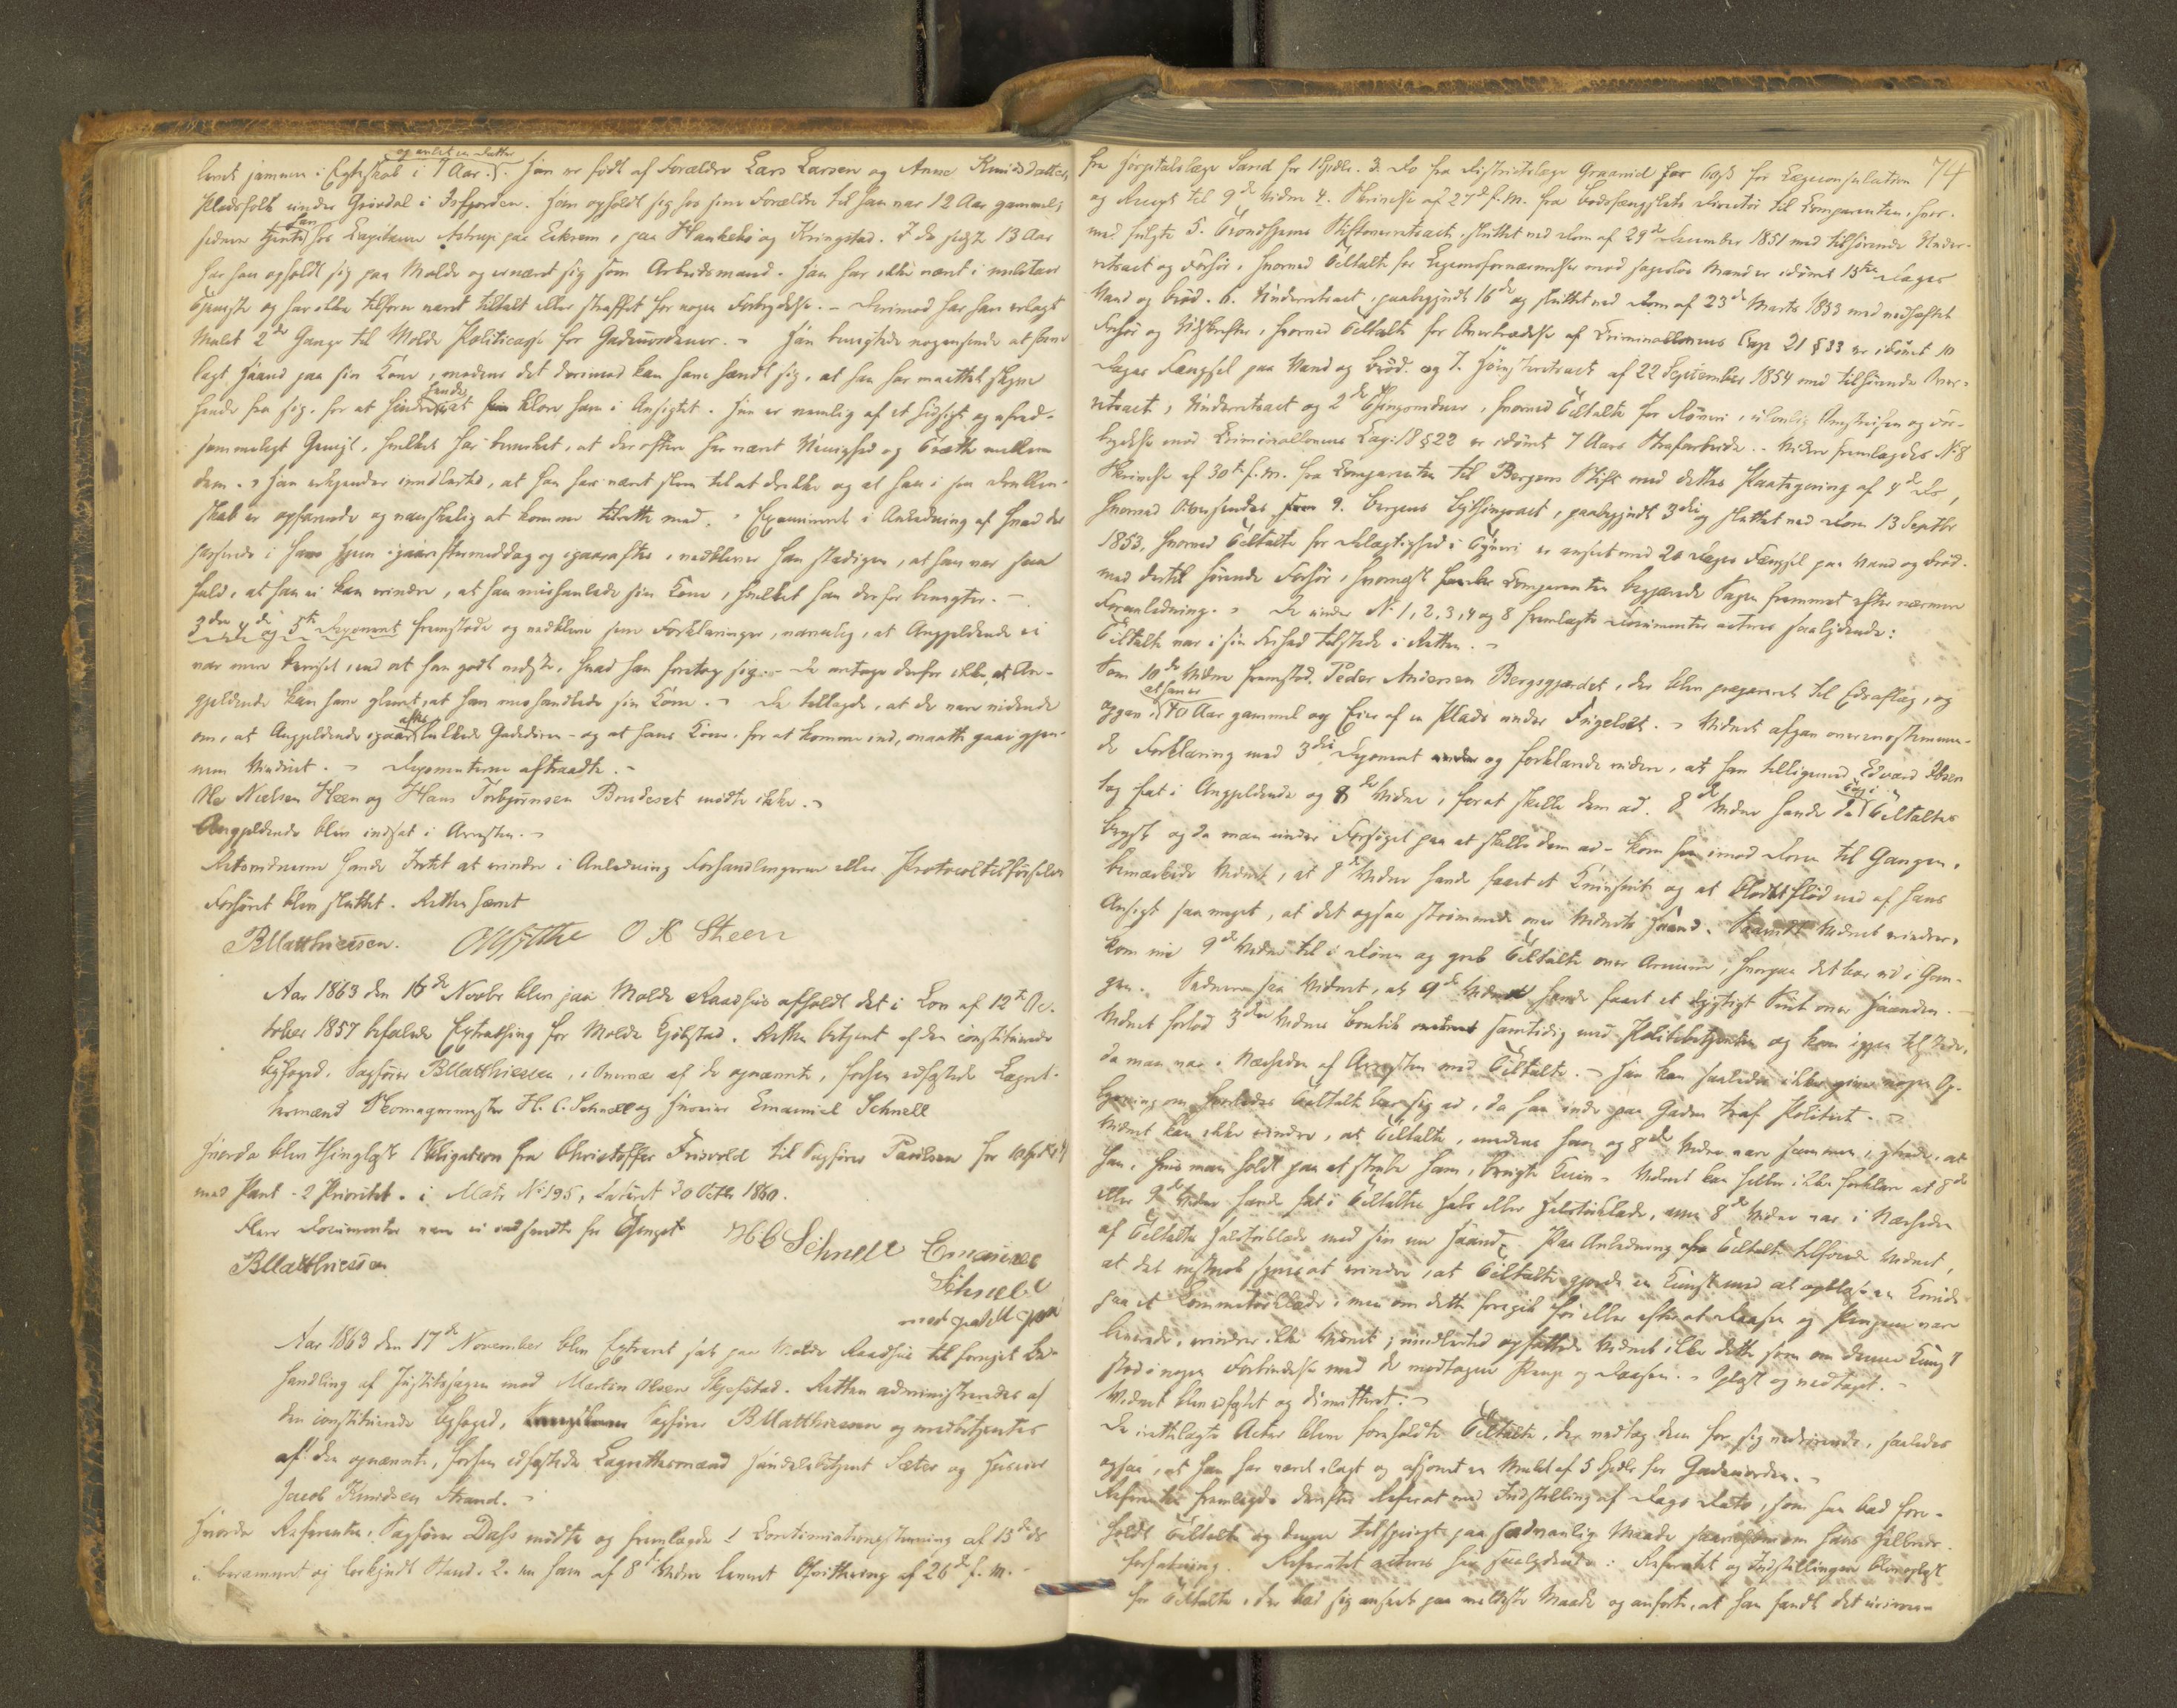 og avlet en Datter
levet sammen i Egteskab i 7 Aar. Han er født af Forældre Lars Larsen og Anne Knudsdatter
Pladsfolk under Grivdal i Isfjorden. Han opholdt sig hos sine Forældre til han var 12 Aar gammel,
siden tjente han hos Capitaine Astrup paa Eikrem, paa Haukebø og Kringstad. I de sidste 13 Aar
har han opholdt sig paa Molde og ernæret sig som Arbeidsmand. Han har ikke været i militair
Tjeneste og har ikke tilforn været tiltalt eller straffet for nogen Forbrydelse. – Derimod har han erlagt
Mulct 2de Gange til Molde Politicasse for Gadeuordener. – Han benegtede nogensinde at have
lagt Haand paa sin Kone, medens det derimod kan have hændt sig, at han har maattet skyve
hende fra sig, for at hindre hende at klore ham i Ansigtet. Hun er nemlig af et hidsigt og ufred-
sommeligt Gemyt, hvilket har bevirket, at der oftere har været Uenighed og Trætte mellem
dem. – Han erkjender imidlertid, at han har været slem til at drikke og at han i sin Drukken-
skab er opfarende og vanskelig at komme tilrette med. – Examineret i Anledning af hvad der
passerede i hans Hjem igaar eftermiddag og igaaraftes, vedblev han stadigen, at han var saa
fuld, at han ei kan erindre, at han mishandlede sin Kone, hvilket han derfor benegter. –
3die 4de og 5te Deponent fremstode og vedbleve sine Forklaringer, navnlig, at Angjeldende ei
var mere beruset, end at han godt vidste, hvad han foretog sig. – De antage derfor ikke, at An-
gjeldende kan have glemt, at han mishandlede sin Kone. – De tillagde, at de vare vidende
om, at Angjeldende igaaraftes lukkede Gadedøren – og at hans Kone, for at komme ind, maatte gaa igjen-
nem Vinduet. – Deponenterne aftraadte. –
Ole Nielsen Heen og Hans Torbjørnsen Brudeset mødte ikke. –
Angjeldende blev indsat i Arresten. –
Retsvidnerne havde Intet at erindre i Anledning Forhandlingerne eller Protocoltilførselen
Forhøret blev sluttet. Retten hævet
BMatthiessen. O K Steen
Aar 1863 den 16de Novbr blev paa Molde Raadhus afholdt det i Lov af 12te Oc-
tober 1857 befalede Extrathing for Molde Kjøbstad. Retten betjent af den constituerede
Byfoged, Sagfører BMatthiessen, i Overvær af de opnævnte, forhen edfæstede Laugret-
tesmænd Skomagermester H. C. Schnell og Huseier Emanuel Schnell
Hvorda blev thinglyst Obligation fra Christoffer Frisvold til Sagfører Paulsen for
med Pant – 2 Prioritet – i Matr. No 195, dateret 30 Octbr 1860.
Flere Documenter vare ei indsendte for Thinget
H C Schnell Emanuel
BMatthiessen Schnell
med paholt pen
Aar 1863 den 17de November blev Extraret sat paa Molde Raadhus til foreget Be-
handling af Justitssagen mod Martin Olsen Skjefstad. Retten administreredes af
den constituerede Byfoged, Sagfører BMatthiessen og medbetjentes
af den opnævnte, forhen edfæstede Laugrettesmænd Handelsbetjent Sæter og Huseier
Jacob Knudsen Strand. –
Hvorda Referenten, Sagfører Dahl mødte og fremlagde 1 Continuationsstevning af 13de ds
i berammet og forkyndt Stand. 2. en ham af 8de Vidne leveret Qvittering af 26de f. M. –
74
fra Hospitalslæge Sand for 1 Spdlr. 3. Do fra Districtslæge Graarud for 60 ß for Lægeconsulation
og Recept til 9de Vidne 4. Skrivelse af 27de f. M. fra Bodsfængslets Director til Comparenten, hvor-
med fulgte 5. Trondhjems Stiftoverretsact, sluttet ved Dom af 29de December 1851 med tilhørende Under-
retsact og Forhør, hvorved Tiltalte for Legemsfornærmelse mod sagesløs Mand er idømt 15ten Dages
Vand og Brød. 6. Underretsact, paabegyndt 16de og sluttet ved Dom af 23de Marts 1853 med vedheftet
Forhør og Udskrifter, hvorved Tiltalte for Overtrædelse af Criminallovens Cap 21 § 33 er idømt 10
Dages Fængsel paa Vand og Brød. og 7. Høiesteretsact af 22 September 1854 med tilhørende Over-
retsact, Underretsact og 2de Thingsvidner, hvorved Tiltalte for Røveri, ulovlig Omstreifen og For-
brydelse mod Criminallovens Cap: 18 § 22 er idømt 7 Aars Strafarbeide. – Videre fremlagdes No 8
Skrivelse af 30te f. M. fra Comparenten til Bergens Stift med dettes Paategning af 4de ds,
hvorved oversendes 9. Bergens Bythingsact, paabegyndt 3die og sluttet ved Dom 13 Septbr
1853, hvorved Tiltalte for Delagtighed i Tyveri er anseet med 20 Dages Fængsel paa Vand og Brød.
med dertil hørende Forhør, hvornæst Comparenten begjærede Sagen fremmet efter nærmere
Foranledning. – De under No 1, 2, 3, 4 og 8 fremlagte Documenter acteres saalydende:
Tiltalte var i sin Frihed tilstede i Retten. –
Som 10de Vidne fremstod Peder Andersen Bergsgjærdet, der blev præpareret til Edsaflæg, og
opgav at han er 40 Aar gammel og Eier af en Plads under Frigelset. – Vidnet afgav overensstemmen-
de Forklaring med 3die Deponent og forklarede videre, at han tilligemed Edvard Ibsen
tog fat i Angjeldende og 8de Vidne, for at skille dem ad. 8de Vidne havde da Tag i Tiltaltes
Bryst og da man under Forsøget paa at skille dem ad – kom hen imod Døren til Gangen,
bemærkede Vidnet, at 8de Vidne havde faaet et Knivsnit og at Blodet flød ned af hans
Ansigt saa meget, at det ogsaa strømmede over Vidnets Haand. Saavidt Vidnet erindrer,
kom nu 9de Vidne til i Døren og greb Tiltalte over Armene, hvorpaa det bar ud i Gan-
gen. Siden saa Vidnet, at 9de Vidne havde faaet et dygtigt Snit over Haanden. –
Vidnet forlod 3die Vidnes Boutik samtidig med Politibetjenten og kom igjen tilstede,
da man var i Nærheden af Arresten med Tiltalte. – Han kan saaledes ikke give nogen Op-
lysning om hvorledes Tiltalte bar sig ad, da han inde paa Gaden traf Politiet. –
Vidnet kan ikke erindre, at Tiltalte, medens han og 8de Vidne vare sammen, ytrede, at
han, hvis man holdt paa at stræbe ham, brugte Kniv. – Vidnet kan heller ikke forklare at 8de
eller 9de Vidne havde fat i Tiltaltes Hals eller Halstørklæde, men 8de Vidne var i Nærheden
af Tiltaltes Halstørklæde med sin ene Haand. Paa Anledning fra Tiltalte tilføiede Vidnet,
at det nestnok synes at erindre, at Tiltalte gjorde en Kunst med at opblæse en Knude
paa et Lommetørklæde, men om dette foregik før eller efter at Daasen og Pengene vare
leverede, erindrer ikke Vidnet; imidlertid opfattede Vidnet ikke dette som om denne Kunst
stod i nogen Forbindelse med de modtagne Penge og Daasen. – Oplæst og vedtaget. –
Vidnet blev edfæstet og dimitteret. –
De irettelagte Acter bleve foreholdte Tiltalte, der vedtog dem for sig vedrørende, saaledes
ogsaa, at han har været ilagt og afsonet en Mulct af 5 Spdlr for Gadeuorden. –
Referenten fremlagde derefter Referat med Indstilling af Dags Dato, som han bad fore-
holdt Tiltalte og denne tilspurgt paa sædvanlig Maade saavelsom om hans Helbreds-
forfatning. Referatet acteres her saalydende: Referatet og Indstillingen blev oplæst
for Tiltalte, der bad sig anseet paa mildeste Maade og anførte, at han fandt det urime-